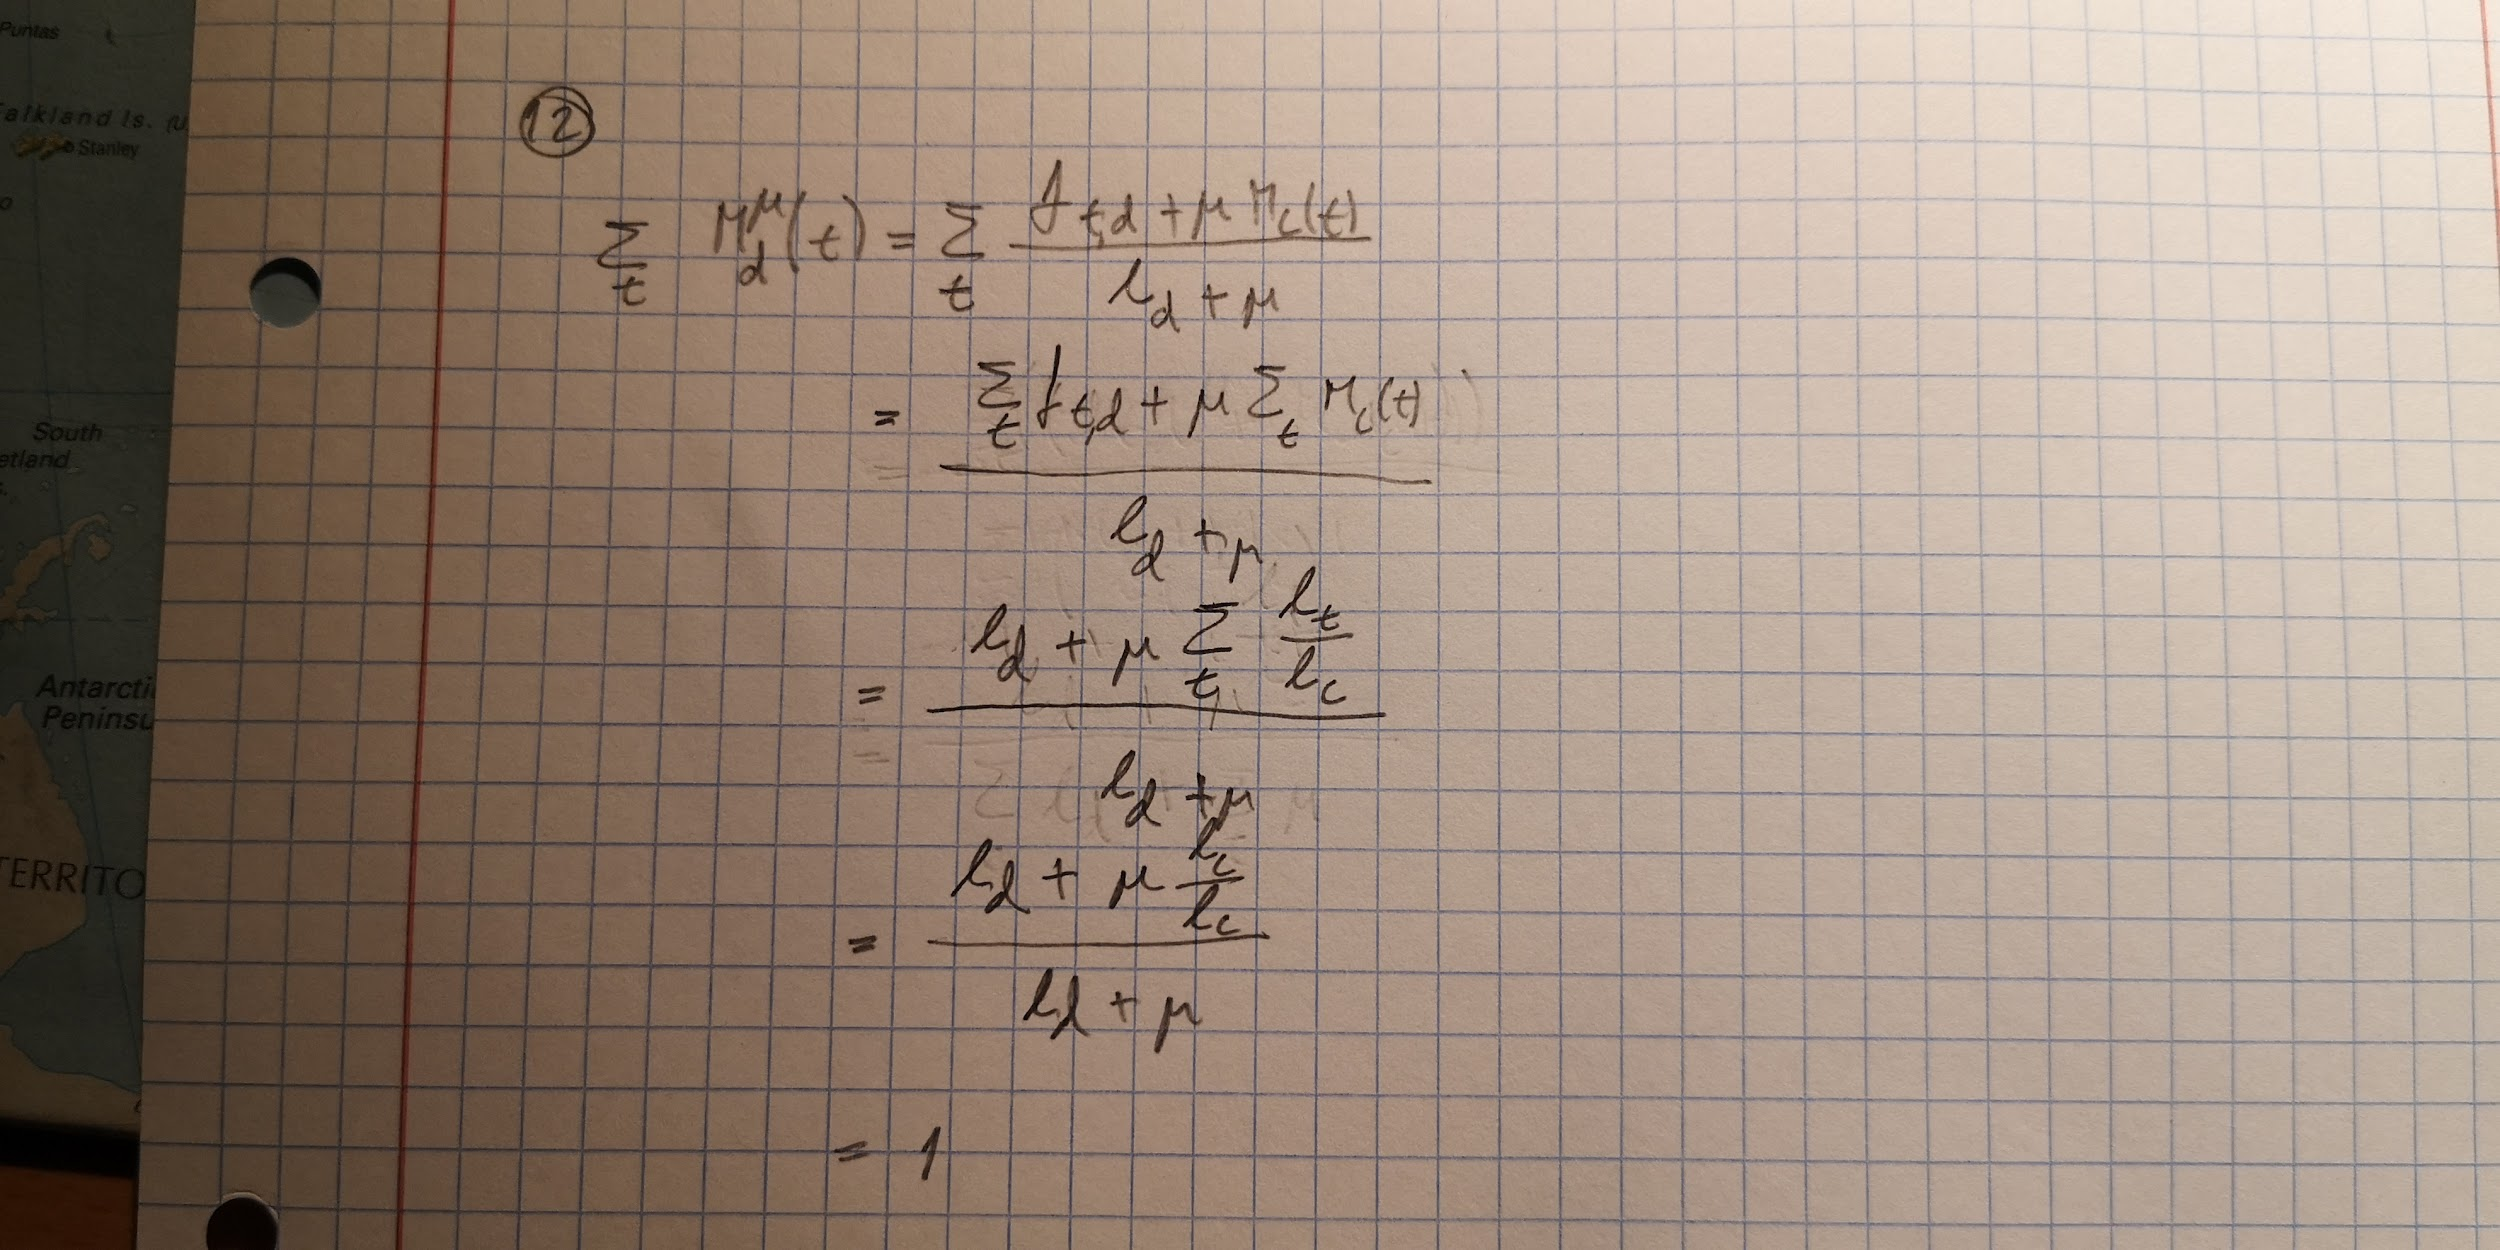 Puntas
Falkland Is. (U
Stanley
South
etland
s.
Antarcti
Peninsu
TERRITO
12
∑_t M_d^μ(t) = ∑_t (f_{t,d} + μ M_c(t)) / (l_d + μ)
= (∑_t f_{t,d} + μ ∑_t M_c(t)) / (l_d + μ)
= (l_d + μ ∑_t l_t / l_c) / (l_d + μ)
= (l_d + μ l_c / l_c) / (l_d + μ)
= 1